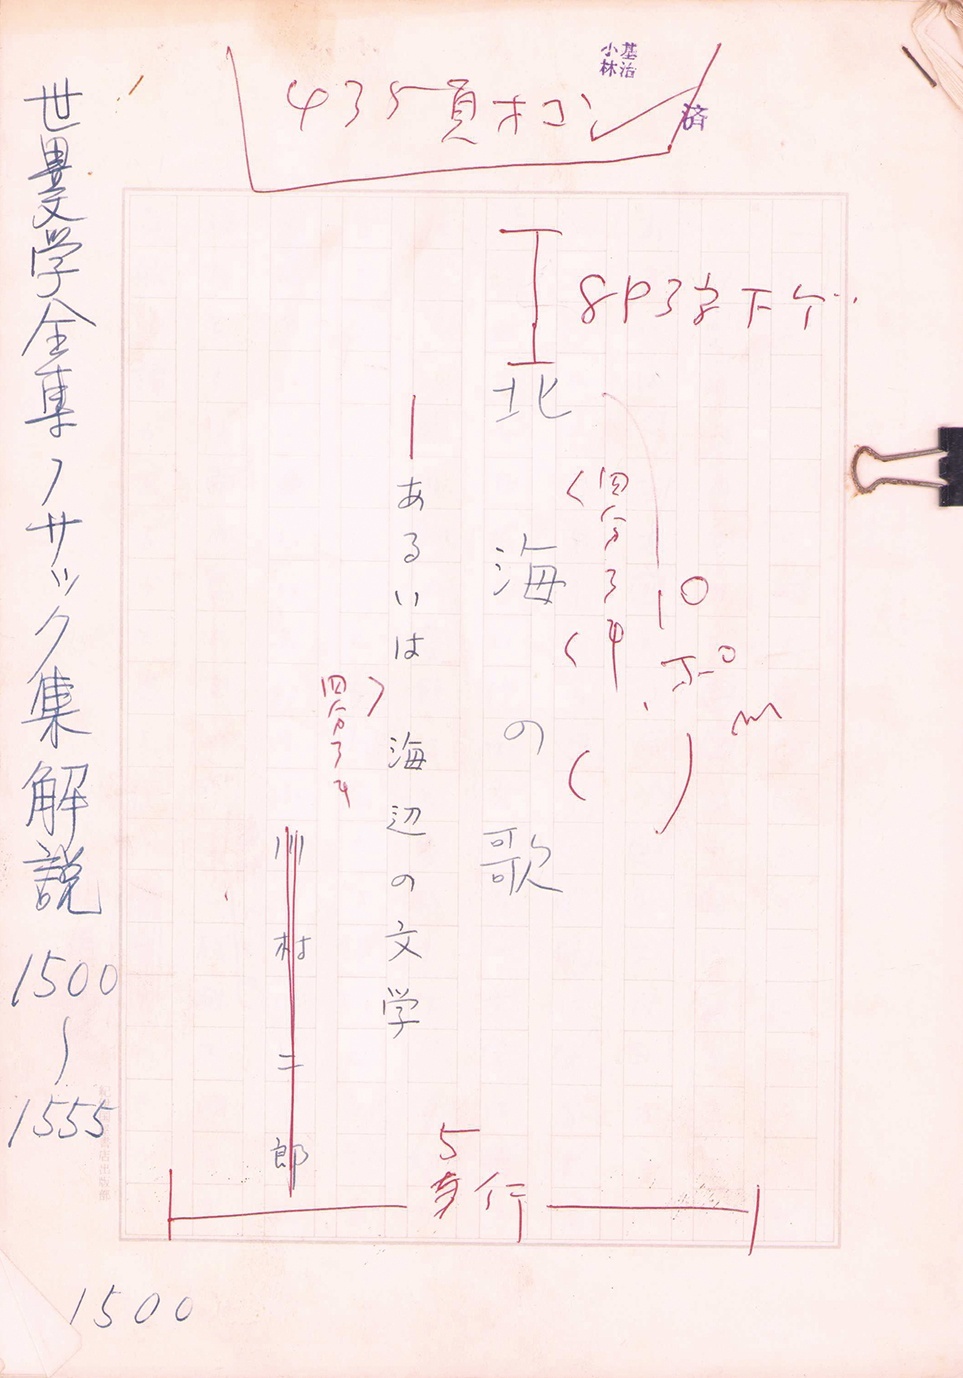 小林
基治
済
435頁オコシ
8P3字下ゲ
北海の歌
四分アキ
10ポ
M
―あるいは 海辺の文学
四分アキ
川村二郎
5字行
世界文学全集ノサック集解説 1500〜1555
1500